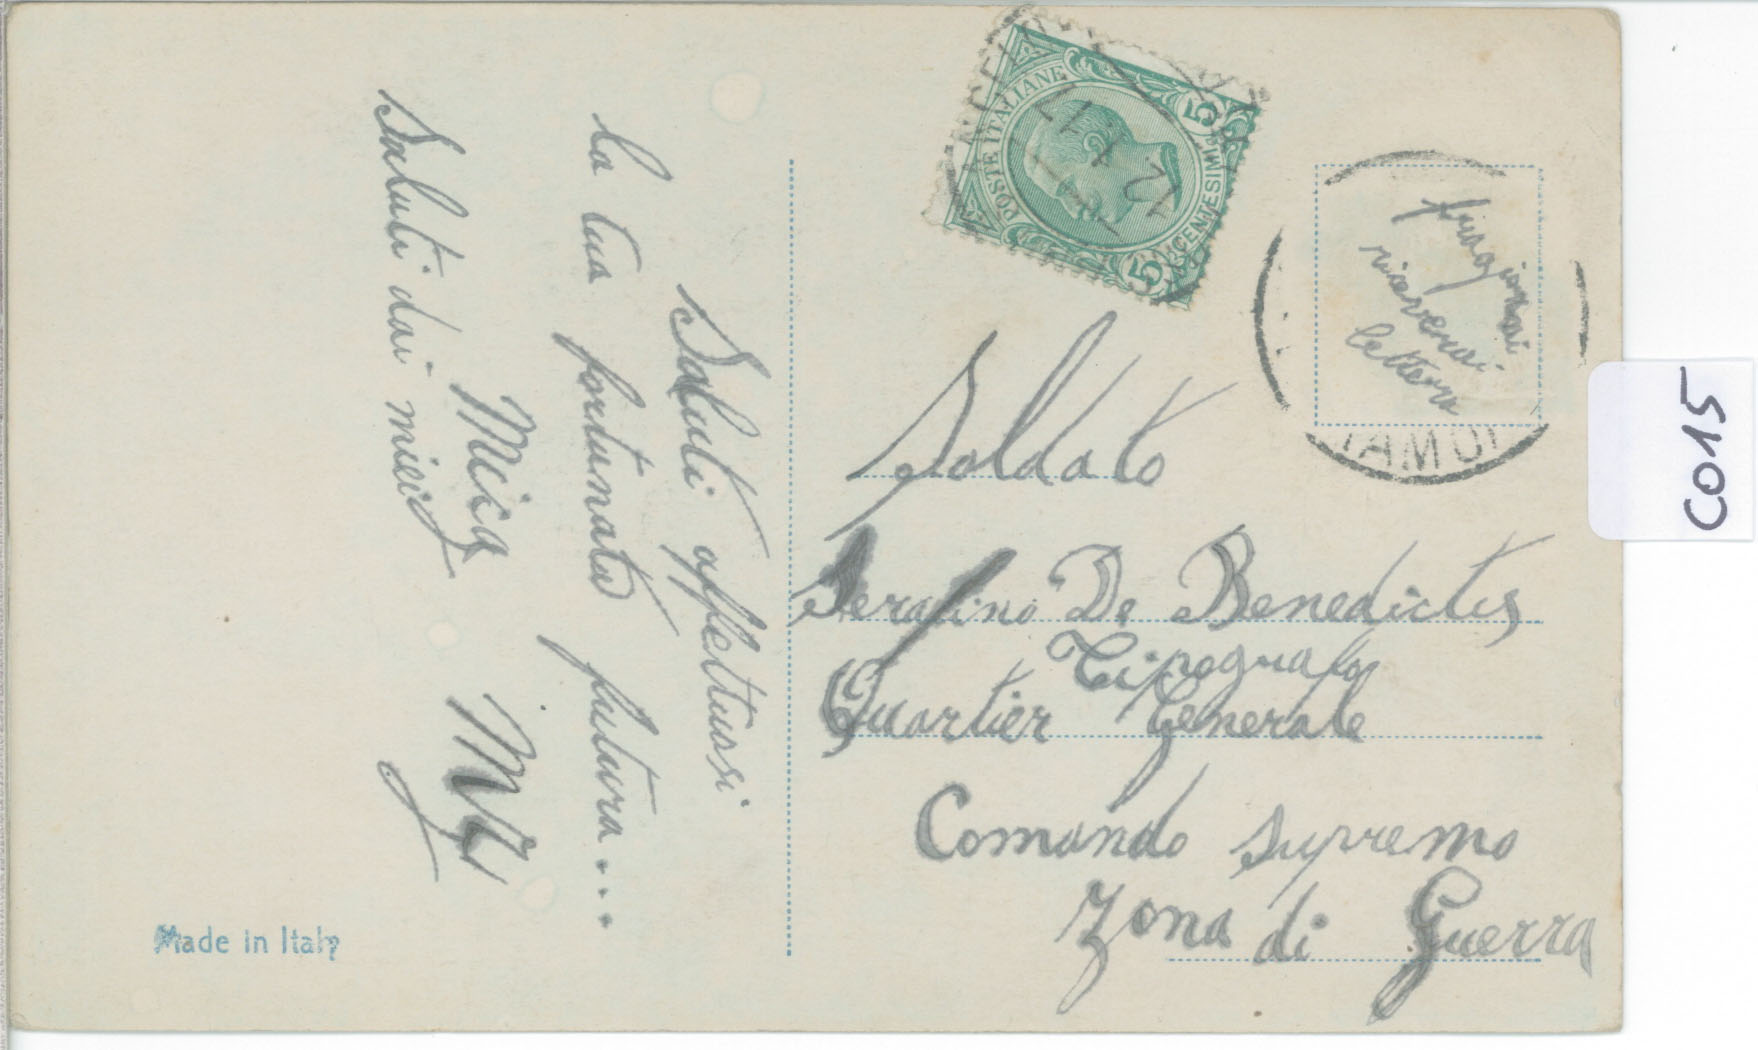 Saluti affettuosi
la tua fortunata futura...
Mica
Saluti dai miei
POSTE ITALIANE
CENTESIMI
5
5
12
17
lettera
Soldato
Serafino De Benedictis
Tipografo
Quartier Generale
Comando Supremo
Zona di Guerra
Made in Italy
C015